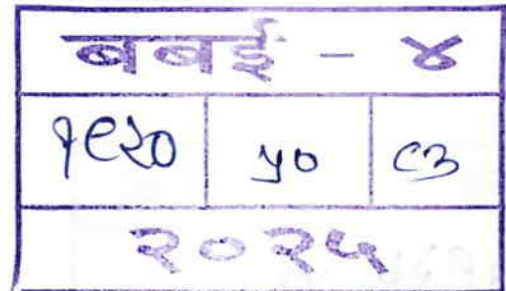 बबई - ४
१९२० ५० ९३
२०२५